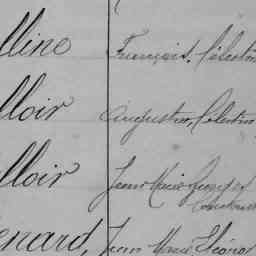 lline François, Célestin
lloir Augustin, Célestin
lloir Jean Marie
enard, Jean Marie Eléonor